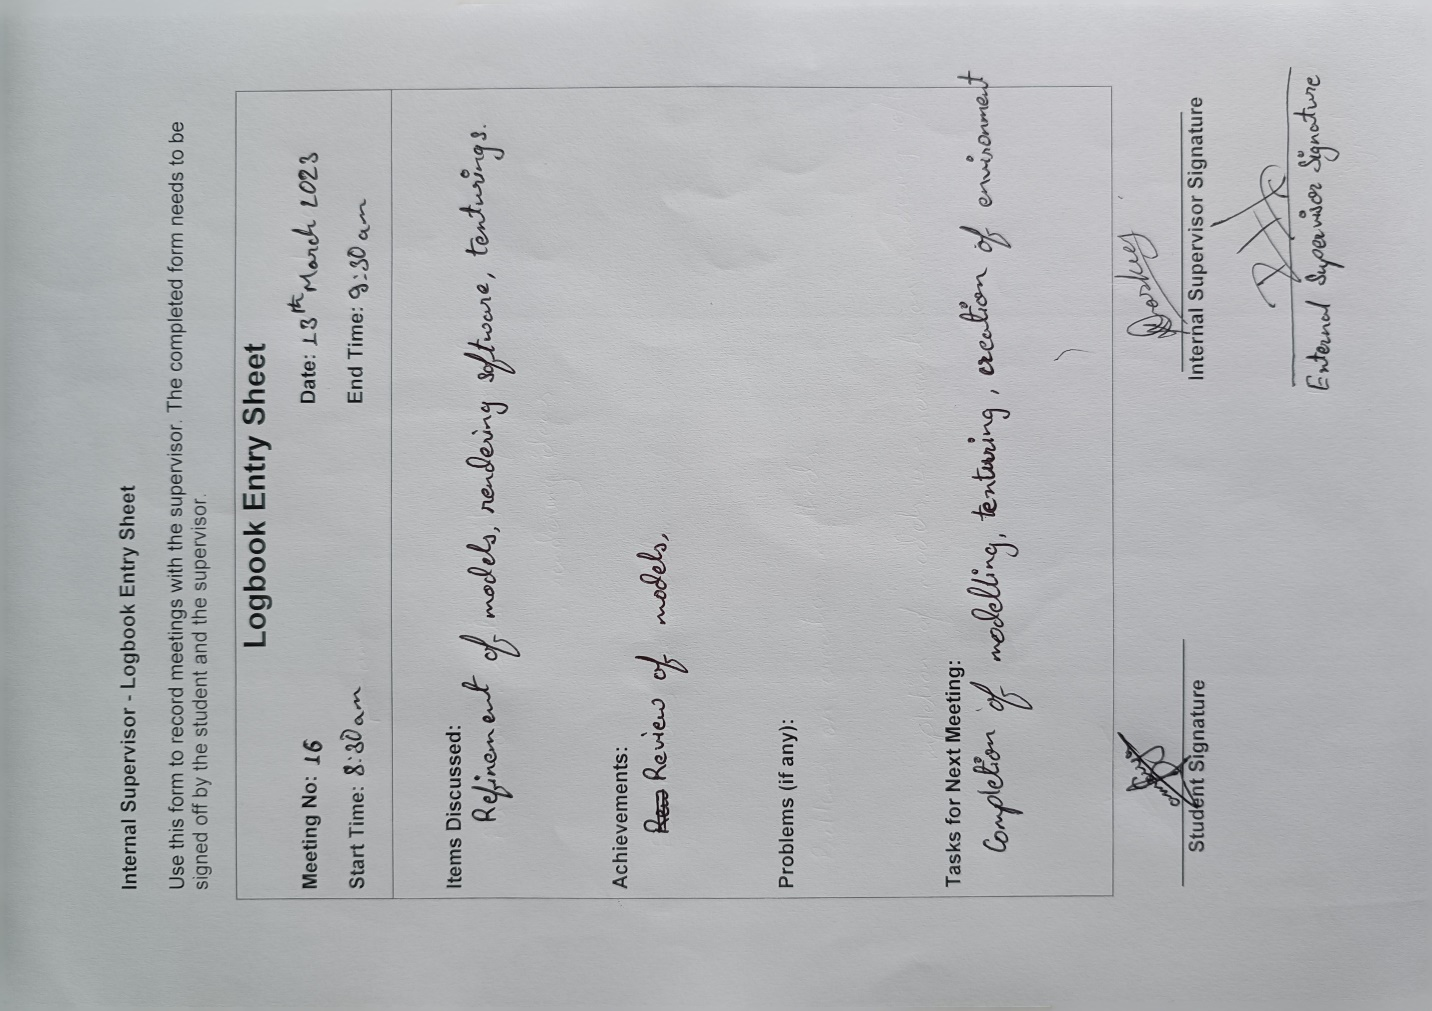 Internal Supervisor - Logbook Entry Sheet
Use this form to record meetings with the supervisor. The completed form needs to be
signed off by the student and the supervisor.
Logbook Entry Sheet
Meeting No: 16 Date: 13th March 2023
Start Time: 8:30am End Time: 9:30am
Items Discussed:
Refinement of models, rendering software, tenturings.
Achievements:
Review of models,
Problems (if any):
Tasks for Next Meeting:
Completion of modelling, tenturing, creation of environment
Student Signature
Internal Supervisor Signature
External Supervisor Signature